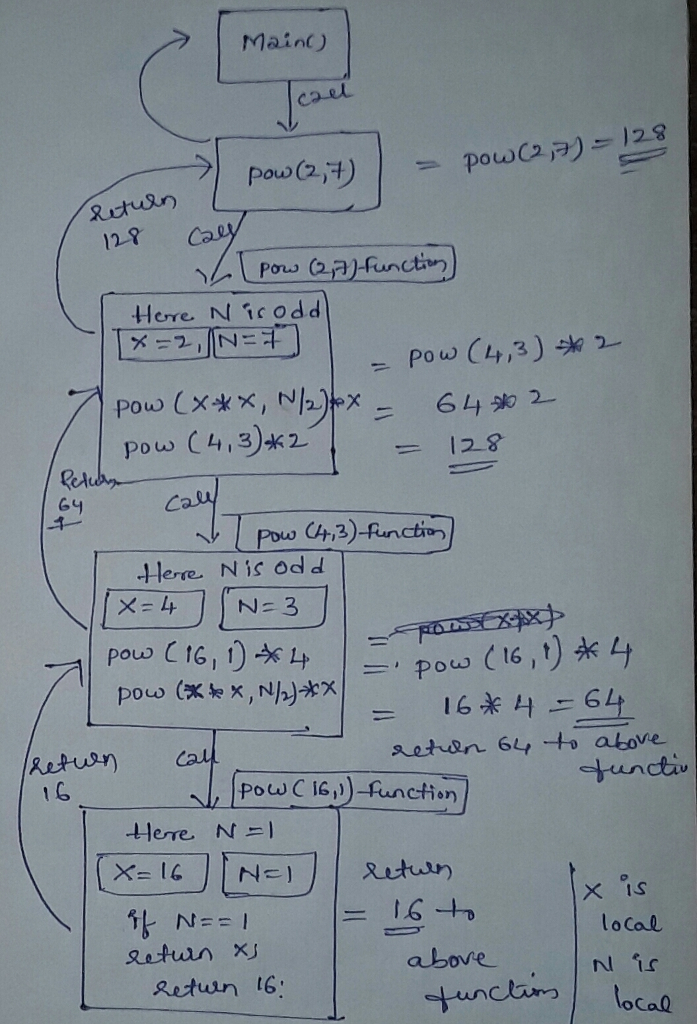 Main()
call
pow(2,7)
= pow(2,7) = 128
return
128
call
pow (2,7)-function
Here N is odd
X=2, N=7
pow (X*X, N/2)*X
pow (4,3)*2
= pow (4,3) * 2
= 64 * 2
= 128
Return
64
call
pow (4,3)-function
Here N is odd
X=4 N=3
pow (16,1) * 4
pow (X*X, N/2)*X
=
= pow (16,1) * 4
= 16 * 4 = 64
return 64 to above
functio
return
16
call
pow(16,1)-function
Here N=1
X=16 N=1
if N==1
return x;
return 16;
return
= 16 to
above
functions
X is
local
N is
local